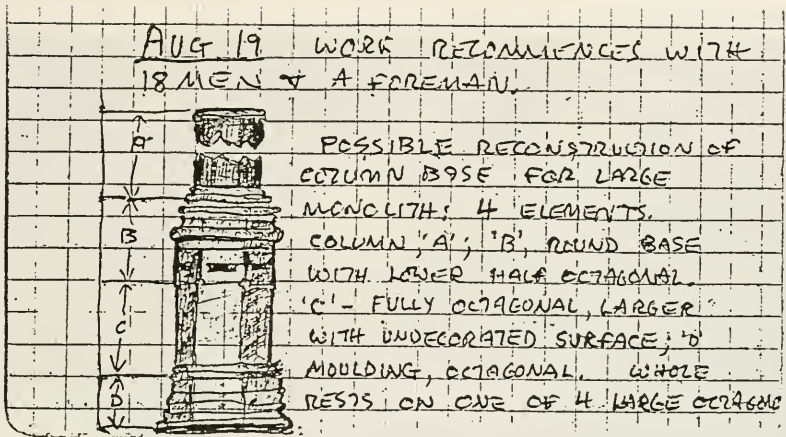 AUG 19 WORK RECOMMENCES WITH
18 MEN & A FOREMAN.
POSSIBLE RECONSTRUCTION OF
COLUMN BASE FOR LARGE
MONOLITH: 4 ELEMENTS.
COLUMN, 'A'; 'B', ROUND BASE
WITH LOWER HALF OCTAGONAL.
'C' - FULLY OCTAGONAL, LARGER
WITH UNDECORATED SURFACE; 'D'
MOULDING, OCTAGONAL. WHOLE
RESTS ON ONE OF 4 LARGE OCTAGONAL
A
B
C
D